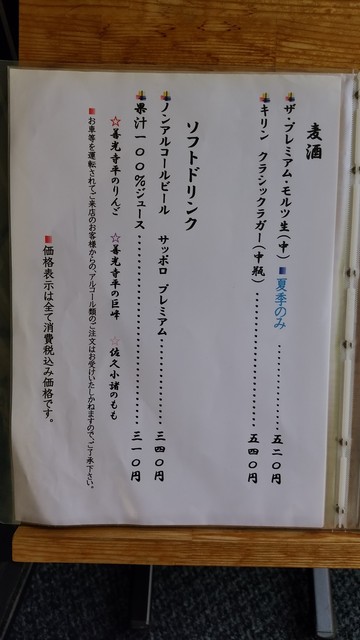 麦酒
ザ・プレミアム・モルツ生(中) ■夏季のみ ………… 五二〇円
キリン クラシックラガー(中瓶) ………………… 五四〇円
ソフトドリンク
ノンアルコールビール サッポロ プレミアム ………… 三四〇円
果汁一〇〇%ジュース ………………………… 三一〇円
☆善光寺平のりんご ☆善光寺平の巨峰 ☆佐久小諸のもも
■お車等を運転されてご来店のお客様からの、アルコール類のご注文はお受けいたしかねますので、ご了承下さい。
■価格表示は全て消費税込み価格です。